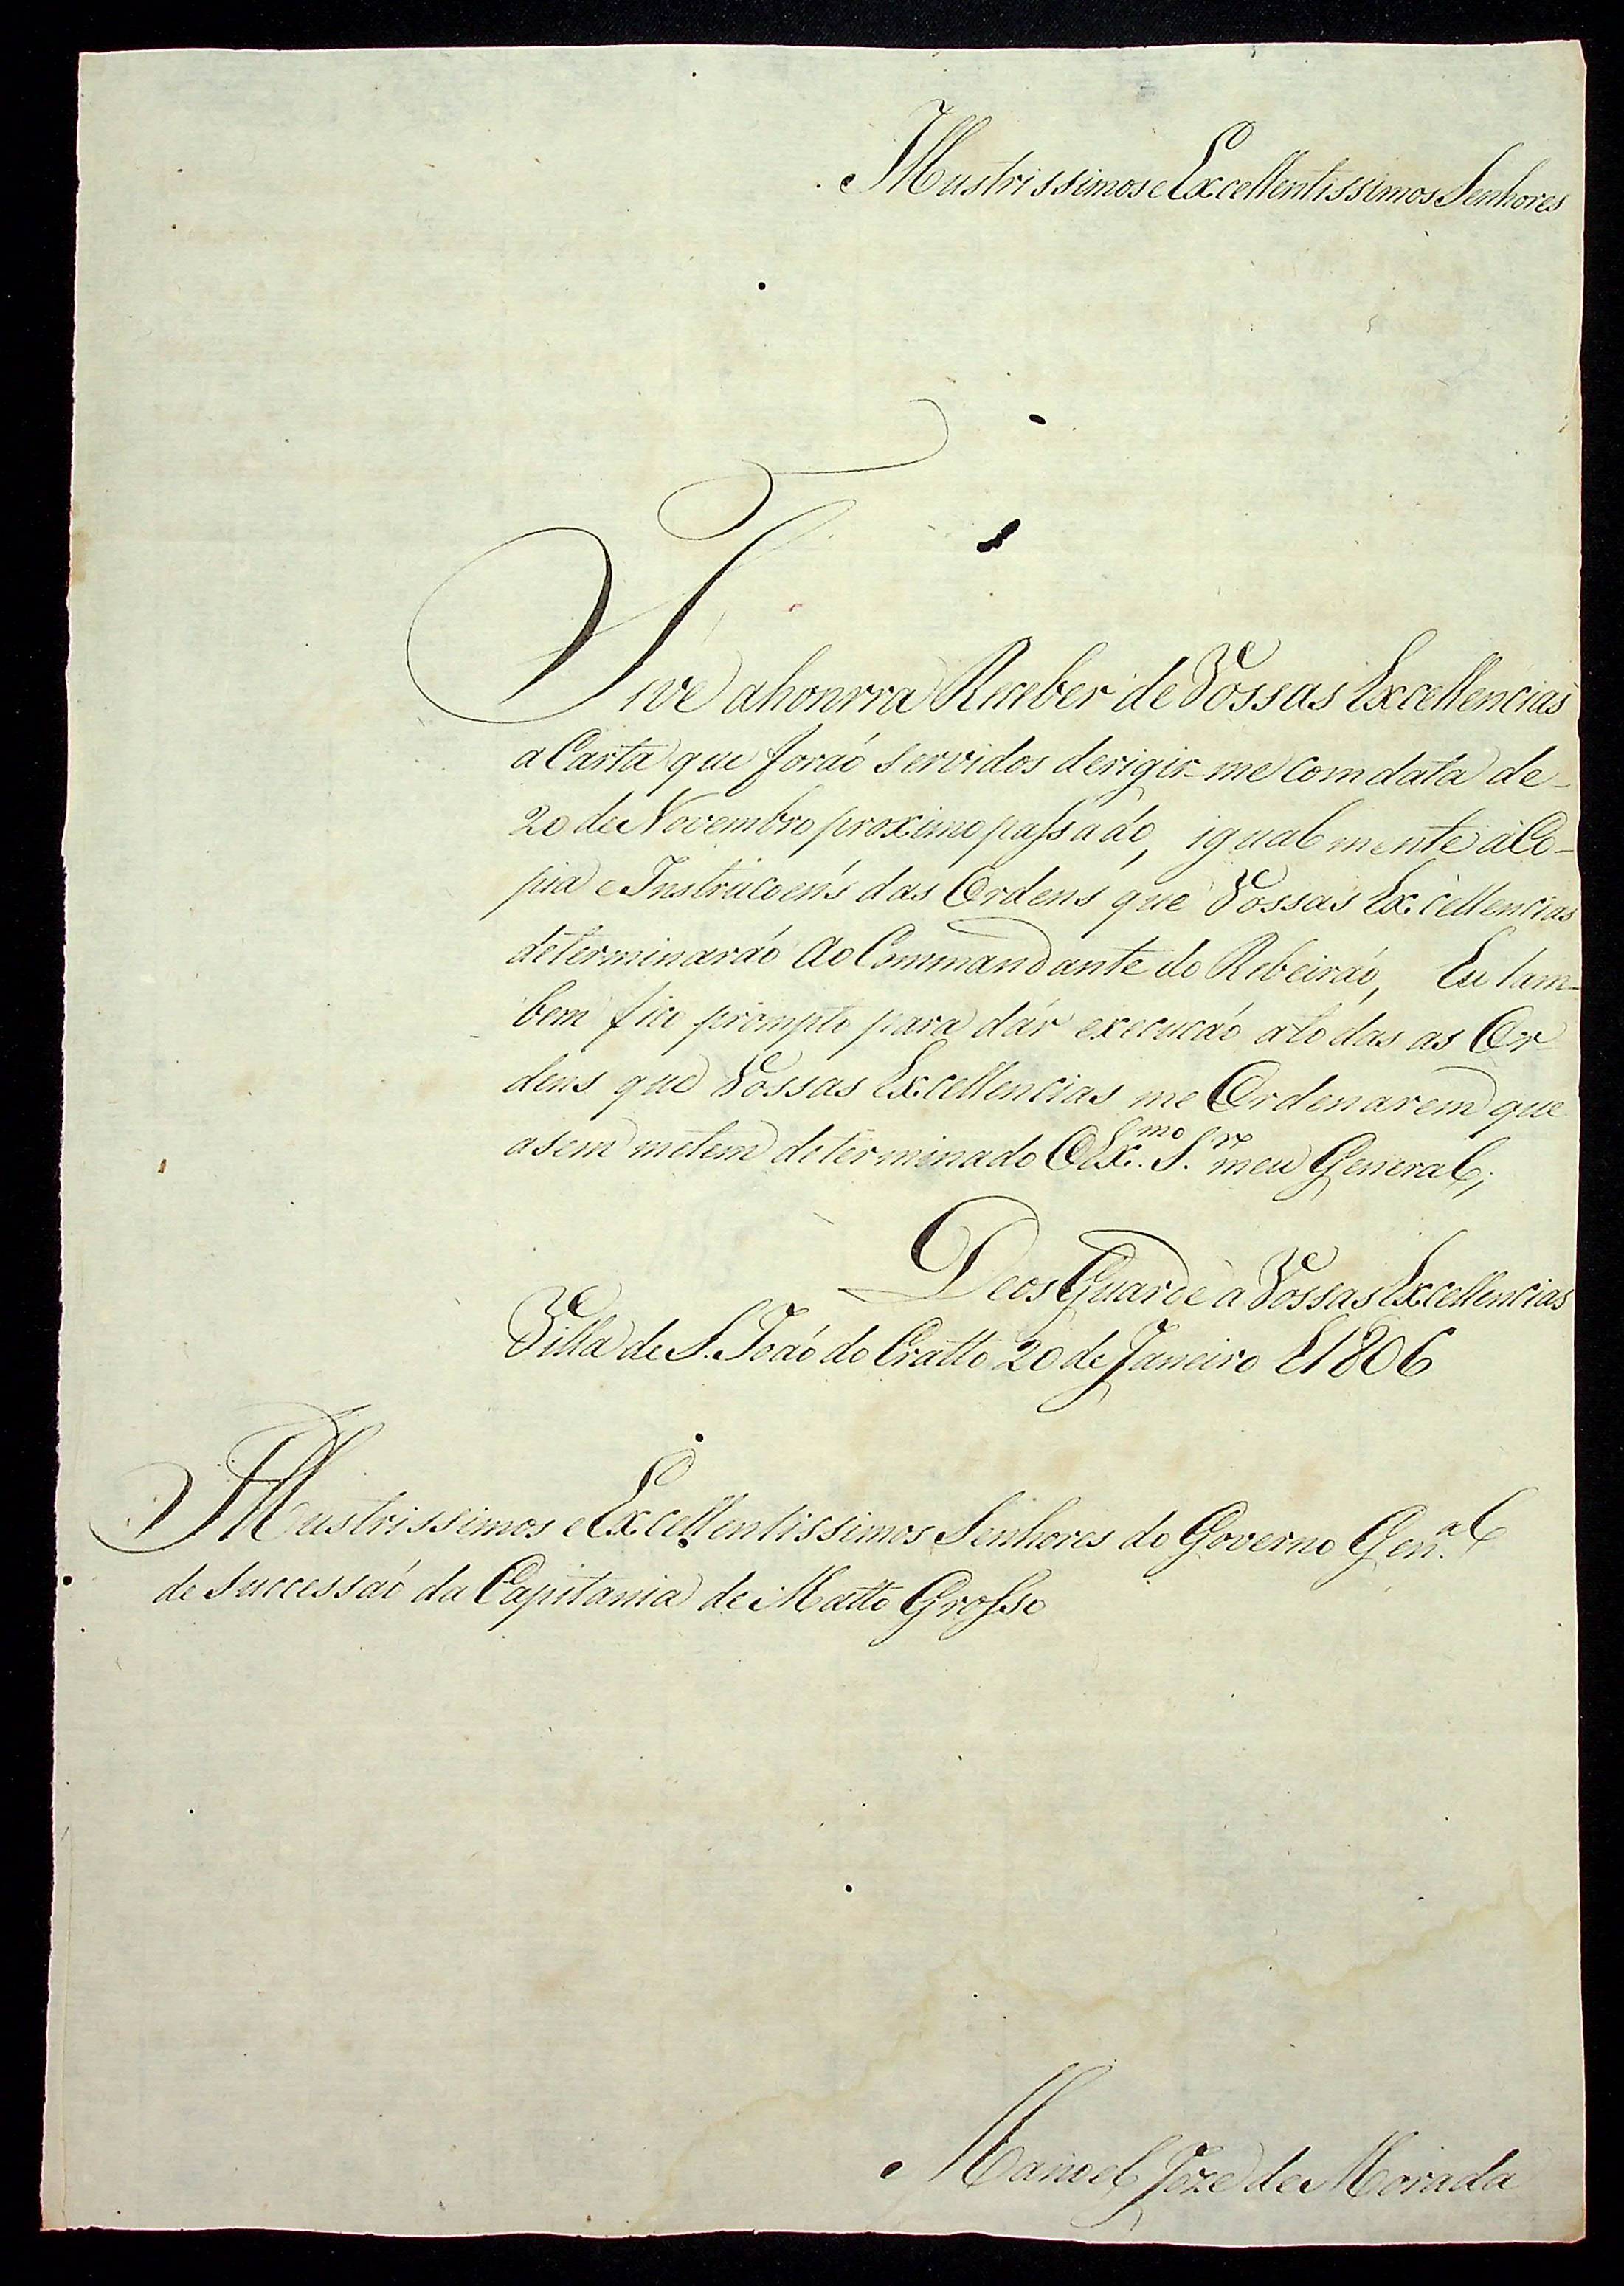 Illustrissimos e Excellentissimos Senhores
Tive a honrra Receber de Vossas Excellencias
a Carta que foraó servidos derigir-me com data de
20 de Novembro proximo passado, igualmente a Co-
pia e Instrucoens das Ordens que Vossas Excellencias
determinaraó ao Commandante do Ribeiraó, Eu tam-
bem fico prompto para dár execucaó a todas as Or-
dens que Vossas Excellencias me Ordenarem que
asem metem determinado O Ex.mo S.r meu General;
Deos Guarde a Vossas Excellencias
Villa de S. Joaó do Cratto 20 de Janeiro d 1806
Illustrissimos e Excellentissimos Senhores do Governo Gen.al
de Successaó da Capitania de Matto Grosso
Manoel Joze de Morada